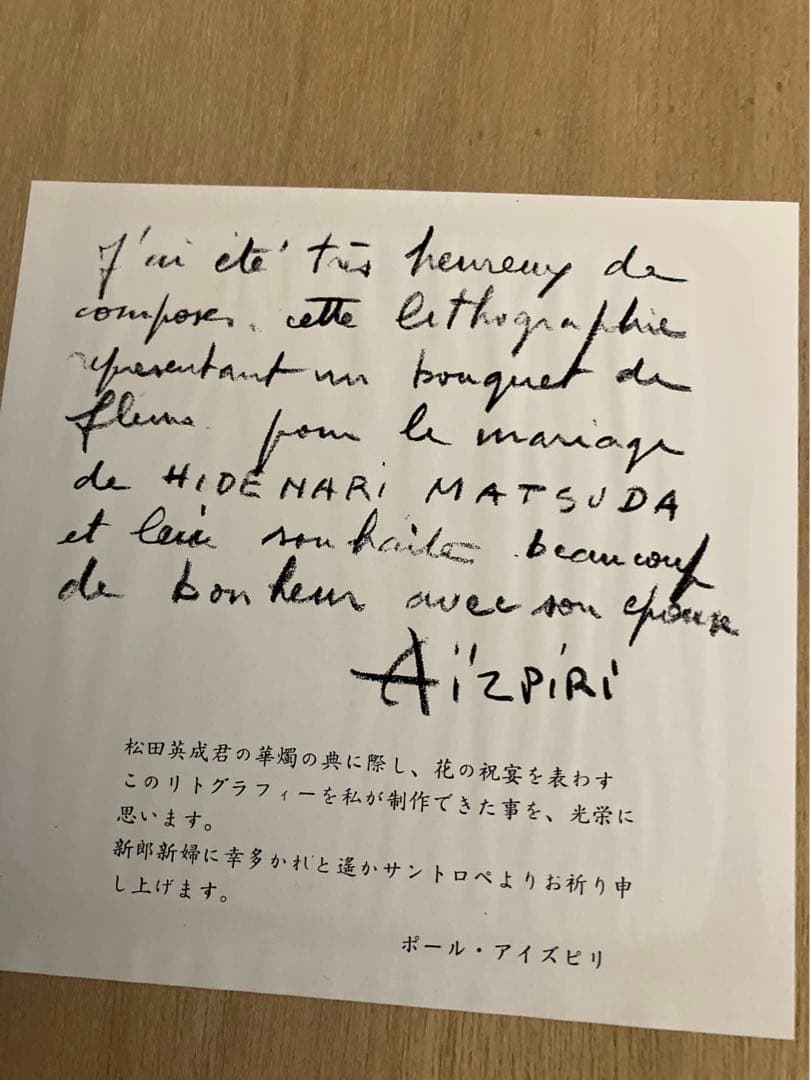 J'ai été très heureux de
composer cette lithographie
représentant un bouquet de
fleurs pour le mariage
de HIDENARI MATSUDA
et leur souhaite beaucoup
de bonheur avec son épouse
AÏZPIRI
松田英成君の華燭の典に際し、花の祝宴を表わす
このリトグラフィーを私が制作できた事を、光栄に
思います。
新郎新婦に幸多かれと遙かサントロペよりお祈り申
し上げます。
ポール・アイズピリ